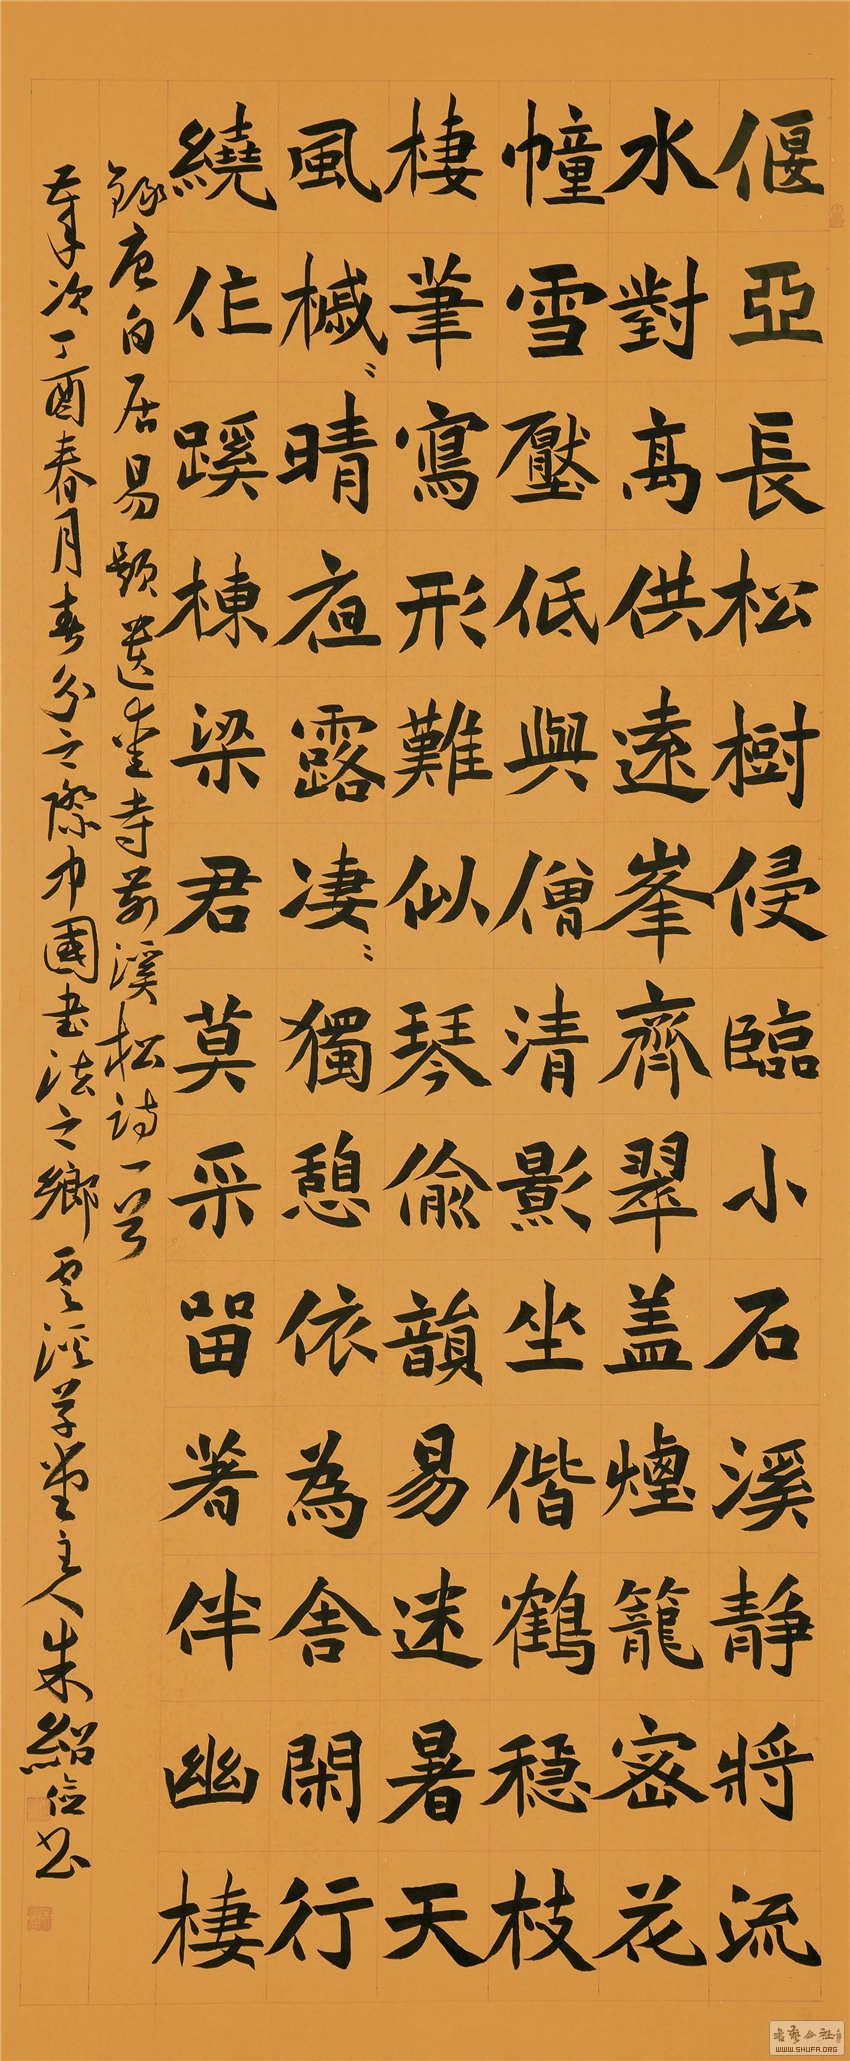 偃亞長松樹侵臨小石溪靜將流
水對高供遠峯齊翠盖煙籠密花
幢雪壓低與僧清影坐偕鶴穩枝
棲筆寫形難似琴偷韻易迷暑天
風槭〻晴夜露凄〻獨憩依為舍閑行
繞作蹊棟梁君莫采留著伴幽棲
錄唐白居易題遺愛寺前溪松詩一首
歲次丁酉春月春分之際中國書法之鄉雲溪草堂主人朱紹儉书
書藝公社
WWW.SHUFA.ORG